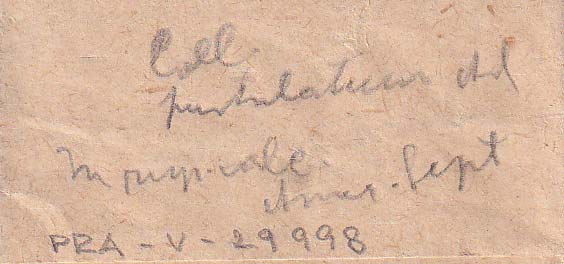 Coll.
pustulatum Ach
In rup. calc.
Amer. Sept
PRA-V-29998